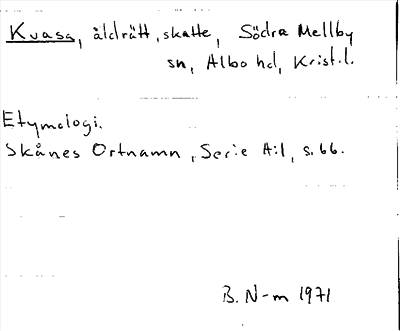 Kvasa, åldrätt, skatte, Södra Mellby
sn, Albo hd, Krist.l.
Etymologi.
Skånes Ortnamn, Serie A:1, s. 66.
B. N-m 1971